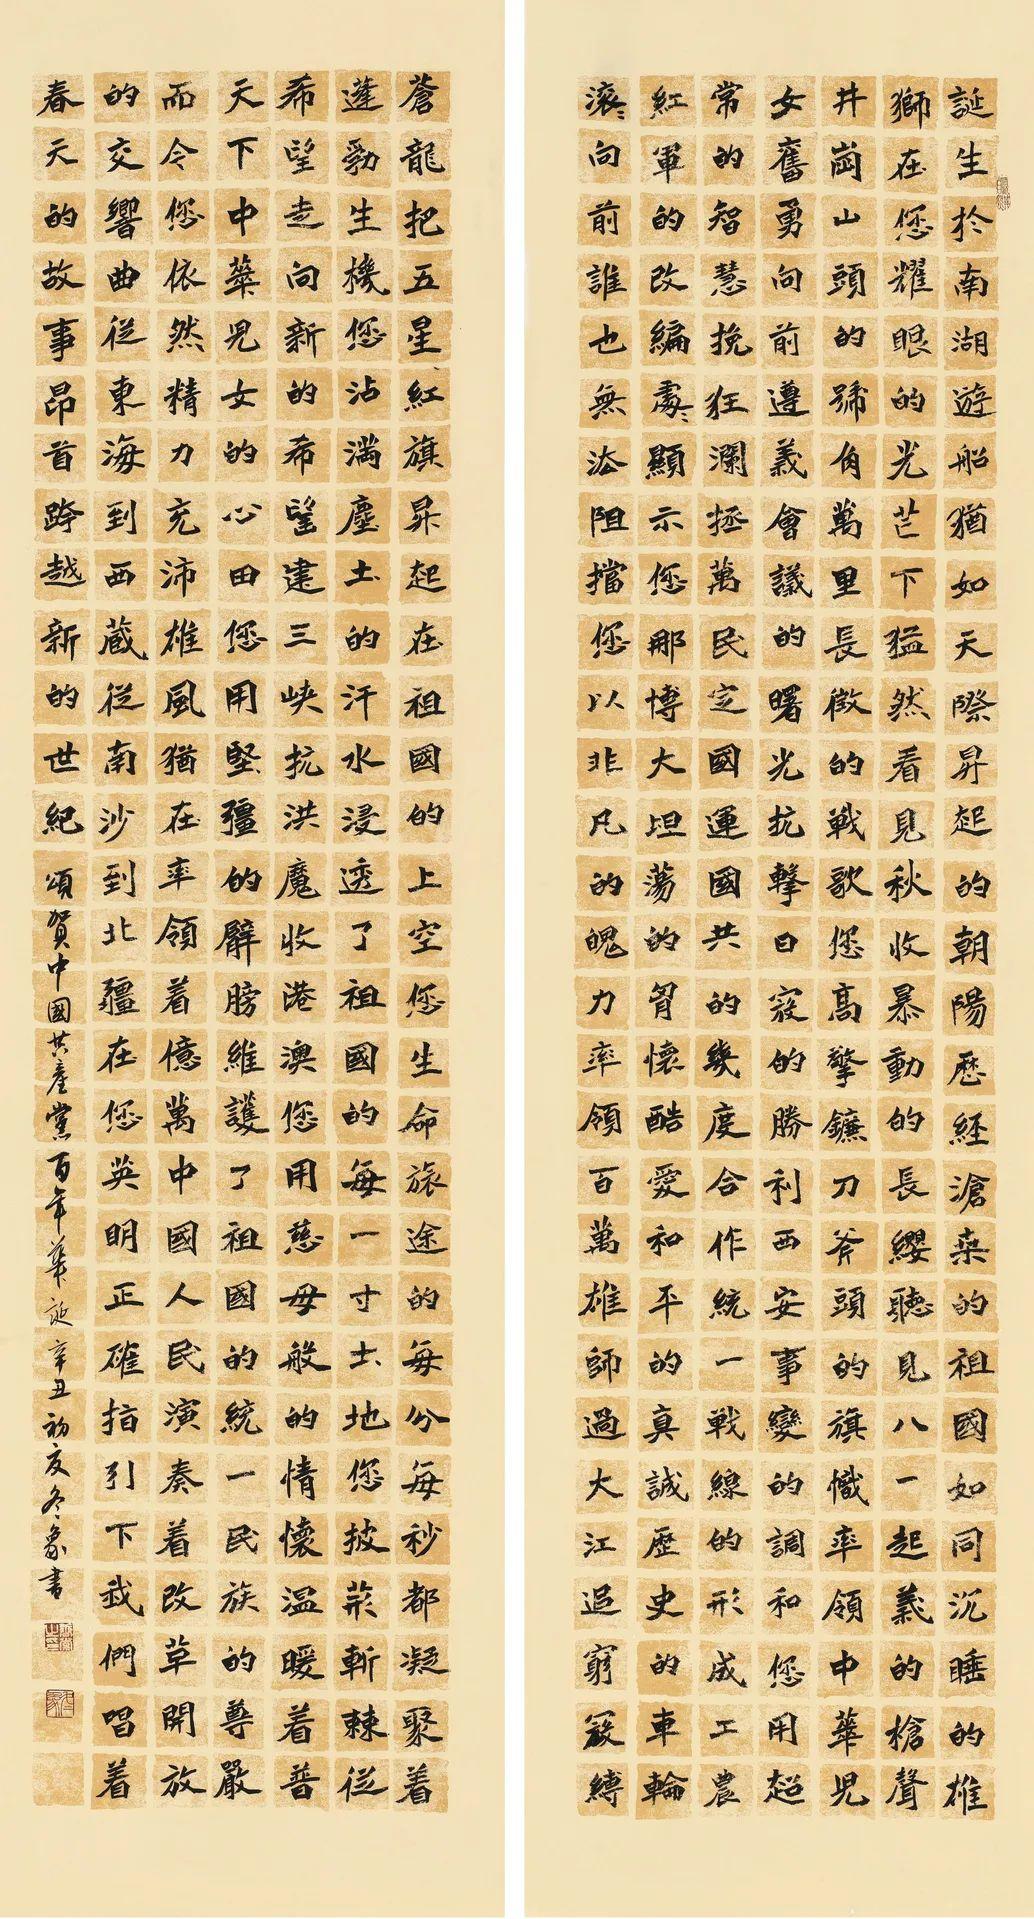 誕生於南湖遊船猶如天際昇起的朝陽歷經滄桑的祖國如同沉睡的雄
獅在您耀眼的光芒下猛然看見秋收暴動的長纓聽見八一起義的槍聲
井崗山頭的號角萬里長徵的戰歌您高擎鐮刀斧頭的旗幟率領中華兒
女奮勇向前遵義會議的曙光抗擊日寇的勝利西安事變的調和您用超
常的智慧挽狂瀾拯萬民定國運國共的幾度合作統一戰線的形成工農
紅軍的改編處處顯示您那博大坦蕩的胸懷酷愛和平的真誠歷史的車輪
滾滾向前誰也無法阻擋您以非凡的魄力率領百萬雄師過大江追窮寇縛
蒼龍把五星紅旗昇起在祖國的上空您生命旅途的每分每秒都凝聚着
蓬勃生機您沾滿塵土的汗水浸透了祖國的每一寸土地您披荊斬棘從
希望走向新的希望建三峽抗洪魔收港澳您用慈母般的情懷溫暖着普
天下中華兒女的心田您用堅疆的臂膀維護了祖國的統一民族的尊嚴
而今您依然精力充沛雄風猶在率領着億萬中國人民演奏着改革開放
的交響曲從東海到西藏從南沙到北疆在您英明正確指引下我們唱着
春天的故事昂首跨越新的世紀 頌賀中國共產黨百年華誕 辛丑初夏冬象書